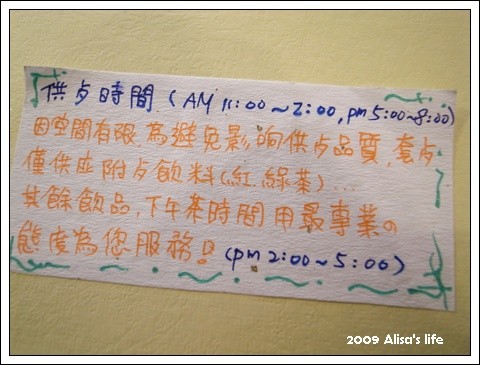 供歺時間 (AM 11:00~2:00, pm 5:00~8:00)
因空間有限,為避免影响供歺品質,套歺
僅供应附歺飲料(紅.綠茶)...
其餘飲品,下午茶時間用最專業の
態度為您服務! (pm 2:00~5:00)
2009 Alisa's life